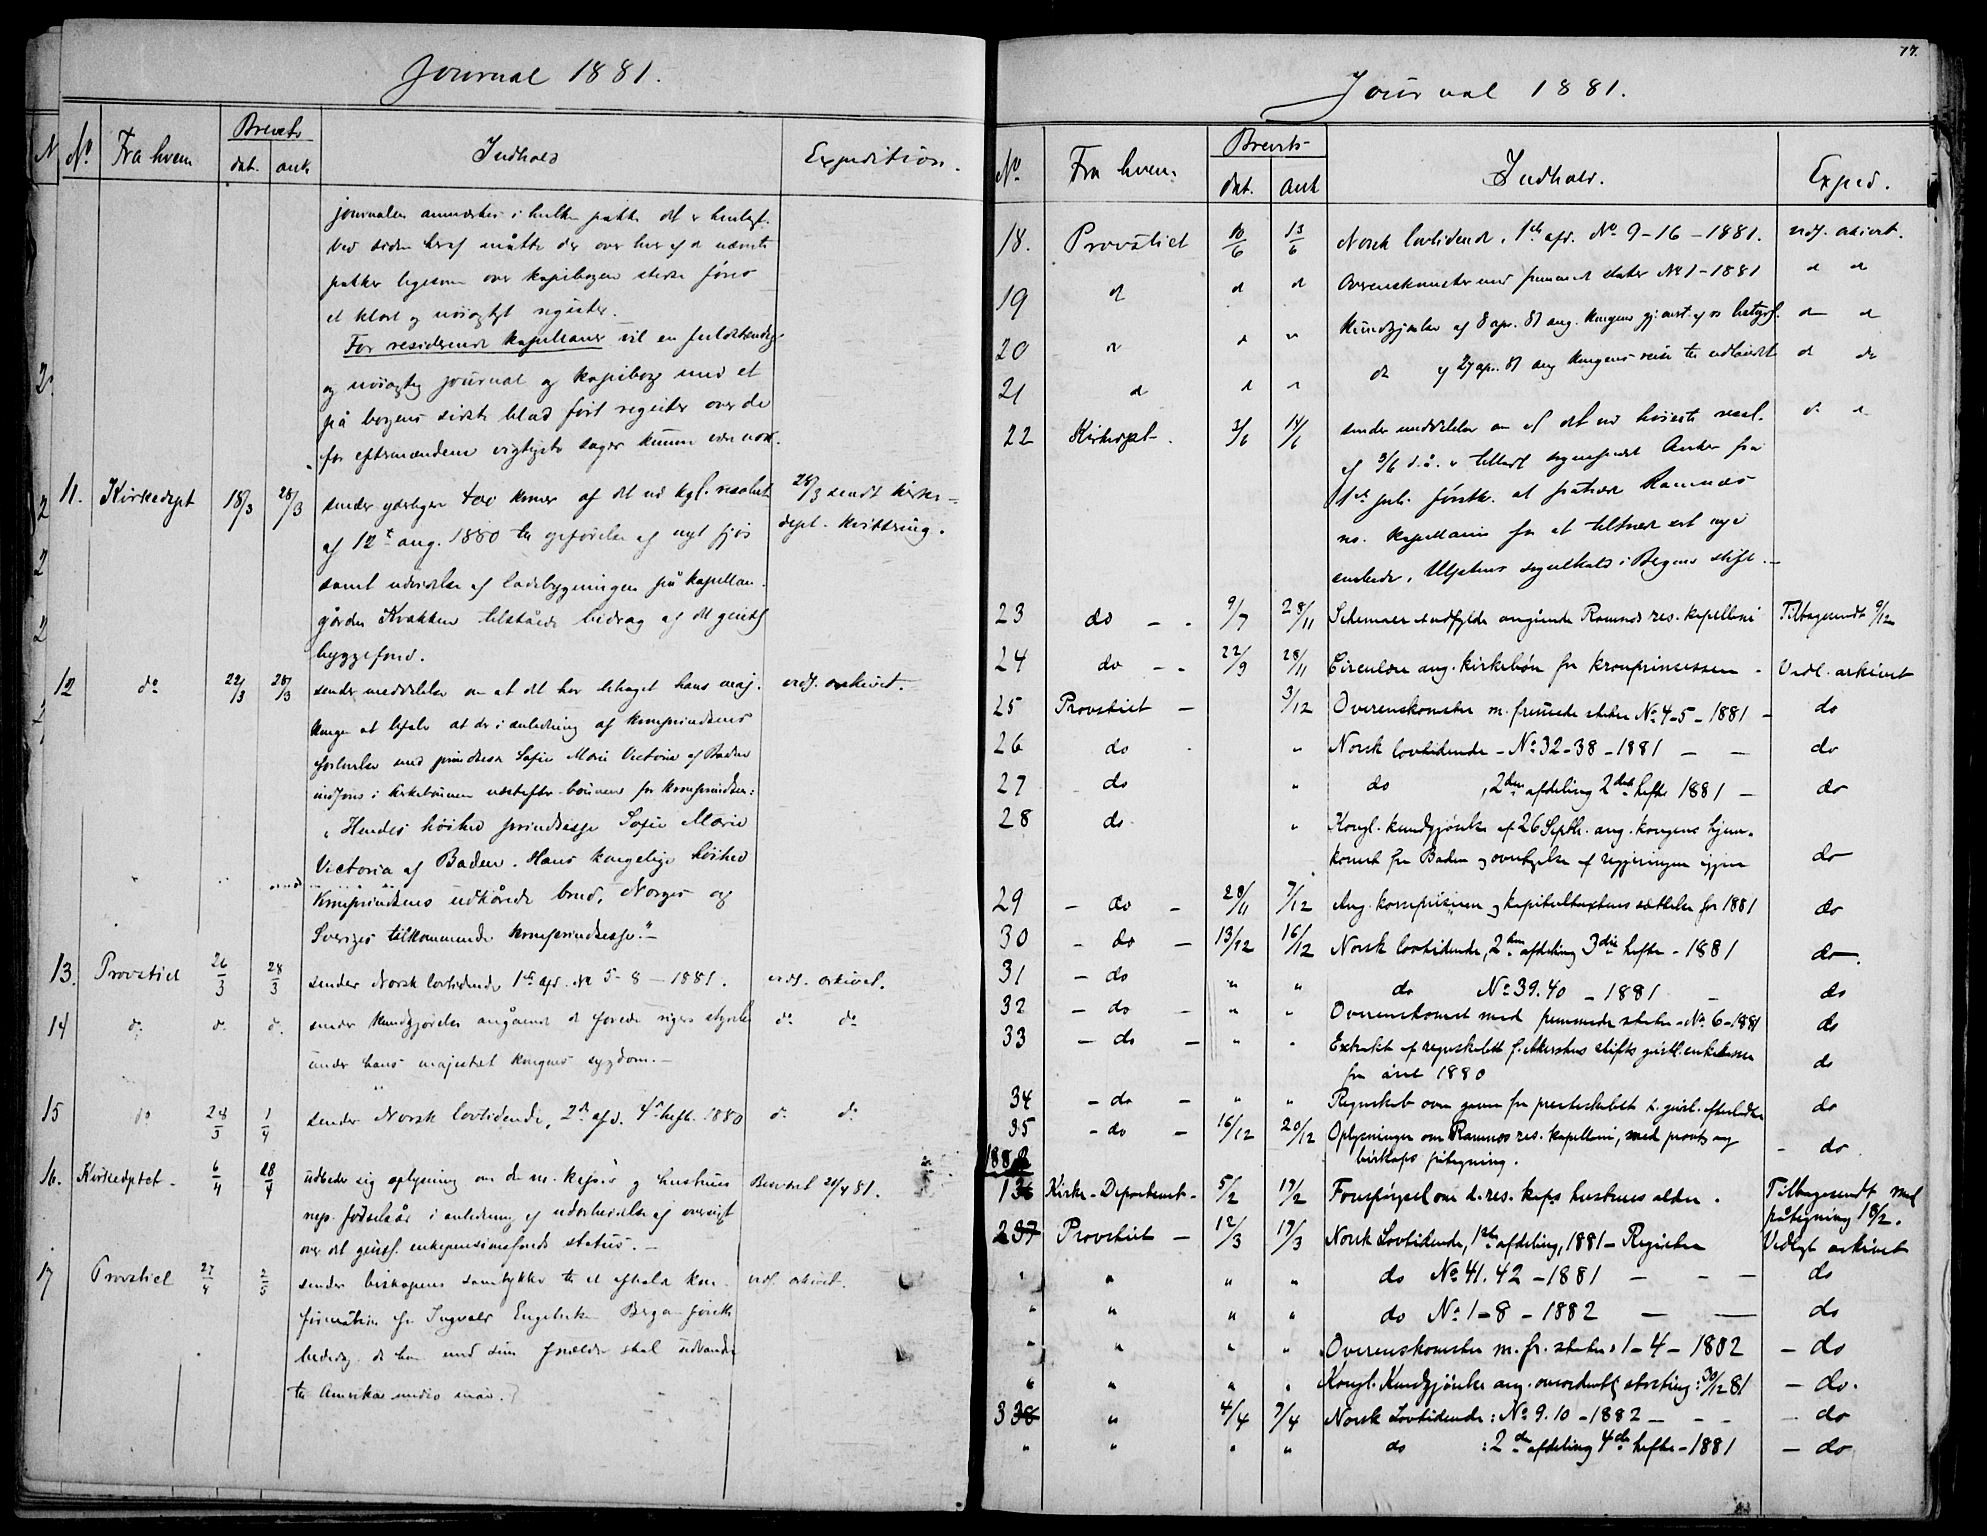 Journal 1881.
No. Fra hvem Brevets dat. ank. Indhold Expedition.
journalen anmærkes i hvilken pakke det er henlagt.
Ved siden heraf måtte der over hver af de nævnte
pakker ligesom over kopibogen sterkt føres
et klart og nøiagtigt register.
For residerende kapellaner vil en fuldstændig
og nøiagtig journal og kopibog med et
på bogens sidste blad ført register over de
for eftermændene vigtigste sager kunne være nok.
11. Kirkedept 18/3 28/3 sender yderligere 400 kroner af det ved kgl. resolut 28/3 sendt kirke-
af 12te aug. 1880 til opførelse af nyt fjøs dept. kvittring.
samt udvidelse af ladebygningen på kapellan-
gården Krakken tilståede bidrag af det geistl.
byggefond.
12 do 22/3 28/3 sender meddelelse om at det har behaget hans maj. vedl. arkivet.
kongen at befale at der i anledning af kronprindsens
forlovelse med prindsesse Sofie Marie Victoria af Baden
indføres i kirkebønnen næstefter bønnen for kronprindsen:
"Hendes høihed prindsesse Sofie Marie
Victoria af Baden. Hans kongelige høihed
Kronprindsens udkårede brud, Norges og
Sveriges tilkommende kronprindsesse."-
13. Provstiet 26/3 28/3 sender Norsk lovtidende 1ste afd. No 5-8-1881. vedl. arkivet.
14 do do do. sender kundgjørelse angående de forenede rigers styrelse do do
under hans majestæt kongens sygdom.-
15 do 28/3 1/4 sender Norsk lovtidende, 2den afd. 4de hefte 1880 do do
16. Kirkedeptet- 6/4 28/4 udbeder sig oplysning om den res. kaps og hustrues Besvaret 28/4 81.
resp. fødselsår i anledning af udarbeidelse af oversigt
over det geistl. enkepensionsfonds status.-
17 Provstiet 27/4 2/5 sender biskopens samtykke til at afholde kon- vedl. arkivet.
firmation for Ingvald Engebretsen Berga førstk.
bededag, da han med sine forældre skal udvandre
til Amerika medio mai.
77.
Journal 1881.
No. Fra hvem Brevets- dat. ank Indhold. Exped.
18. Provstiet 10/6 13/6 Norsk lovtidende, 1ste afd. No 9-16-1881. vedl. arkivet.
19 do do do Overenskomster med fremmede stater No 1-1881 do do
20 do do do Kundgjørelse af 8 apr. 81 ang. kongens gjenovert. af rs bestyrels. do do
21 do do do do af 27 apr. 81 ang kongens reise til udlandet do do
22 Kirkedpt. 3/6 14/6 sender meddelelse om at det ved høieste resol. do do
af 3/6 d.å. er tilladt sogneprest Anker fra
1ste juli førstk. at fratræde Ramnæs
res. kapellani for at tiltræde sit nye
embede, sognekald i Bergens stift.-
23 do - - 9/7 28/11 Schemaer at udfylde angående Ramnæs res. kapellani Tilbagesendt 9/12
24 do - - 22/9 28/11 Circulære ang. kirkebøn for kronprinsessen - Vedl. arkivet
25 Provstiet - 3/12 Overenskomster m. fremede stater No 4-5-1881 - do
26 do " Norsk lovtidende - No 32-38-1881 - - do
27 do " do , 2den afdeling 2det hefte 1881 - do
28 do " Kongl. kundgjørelse af 26 Septb. ang. kongens hjem-
komst fra Baden og overtagelse af regjeringen igjen do
29 - do - 28/11 7/12 Ang. kornprisernes og kapitelstaxtens sættelse for 1881 do
30 - do - 13/12 16/12 Norsk lovtidende, 2den afdeling 3die hefte - 1881 do.
31 - do " " do No 39.40 - 1881 - do
32 - do - " " Overenskomst med fremmede stater - No 6-1881 do
33 - do - " " Extrakt af regnskabet f. Akershus stifts geistl. enkekasse
for året 1880 do
34 - do - " " Regnskab over gaven fra presteskabet t. geistl. efterladte do
35 - do - 16/12 20/12 Oplysninger om Ramnæs res. kapellani, med provst og
biskops påtegning. - do
1882
1 36 Kirke-Departemet- 5/2 17/2 Forespørgsel om d. res. kaps hustrues alder. Tilbagesendt med
påtegning 18/2.
2 37 Provstiet - 12/3 17/3 Norsk Lovtidende, 1ste afdeling, 1881 - Register Vedlagt arkivet
" " " " do No 41.42 - 1881 - - - do
" " " " do No 1-8 - 1882 - - do
" " " " Overenskomster m. fr. stater: 1-4-1882 - do
" " " " Kongl. Kundgjørelse ang. overordentlig storting: 30/12 81 - do.
3 38 " 4/4 7/4 Norsk Lovtidende: No 9.10 - 1882 - - - - do
" " " " do : 2den afdeling 4de hefte - 1881 - do